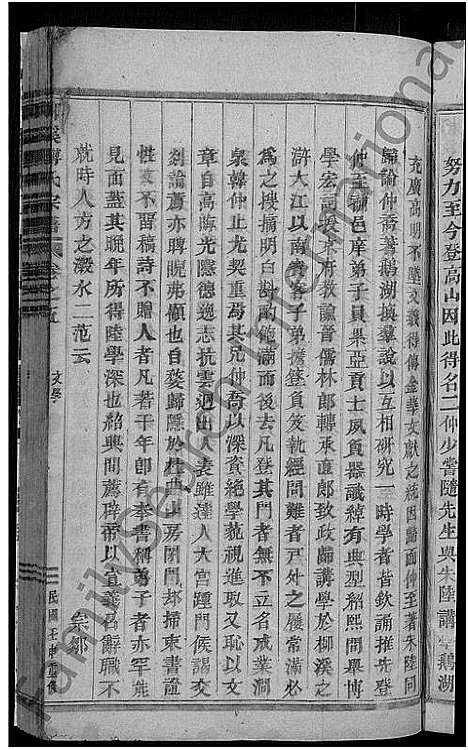 努力至今登高山因此得名二仲少嘗隨先生與朱陸講學鵝湖
充廣高明不墜又幾得傳金華文獻之統因歸面仲至著朱陸同
歸論仲喬著鵝湖換羣說以互相研究一時學者皆欽誦推先登
仲至補邑庠弟子員果亞貢士夙負器識綽有典型紹熙間舉博
學宏詞授本府教諭晉儒林郎轉承直郎致政歸講學於柳溪之
滸大江以南貴客子弟擔簦負笈執經問難者戶外之屨常滿必
為之搜摘明白斟酌飽滿而後去凡登其門者無不立名成業澗
泉韓仲止尤契重焉其兄仲喬以深資絕學藐視進取又恥以文
章自高蹈光隱德逸志抗雲迥出人表雖達人大宮踵門候謁交
剡論薦亦睥睨弗顧也自婺歸隱於杜西山房閉門却掃東書證
性文不習稿詩不贈人者凡若干年卽有奉書稱弟子者亦罕能
見面蓋其晚年所得陸學深也紹興間薦辟帝以宣義名辭職不
就時人方之澂水二范云
柳溪傅氏宗譜 卷之五
文學
崇鄒
民國壬申重修
FamilySearch International